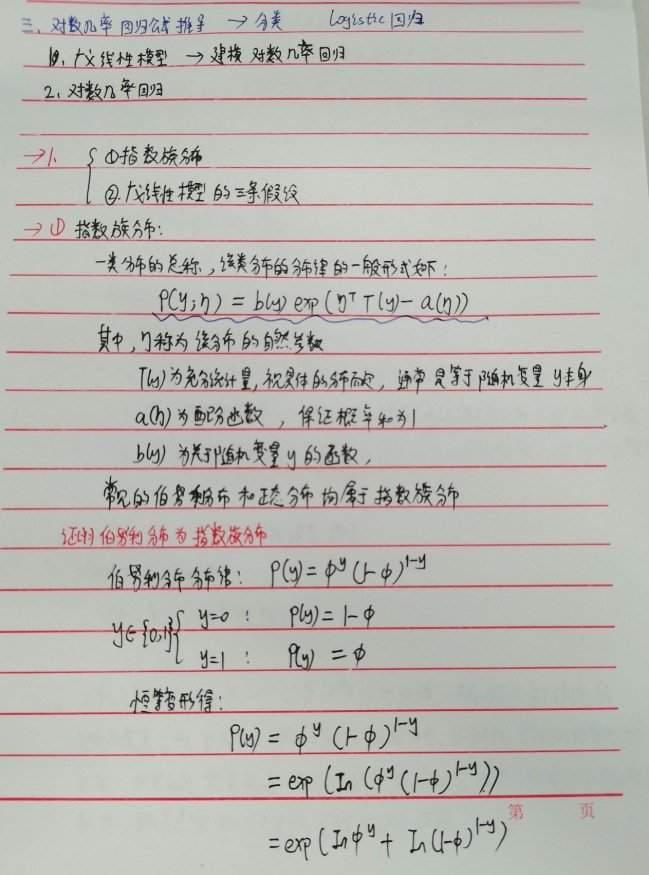 三、对数几率回归公式推导 → 分类 logistic回归
1. 广义线性模型 → 建模 对数几率回归
2. 对数几率回归
→ 1. { ①指数族分布
②.广义线性模型的三条假设
→ ① 指数族分布:
一类分布的总称,该类分布的分布律的一般形式如下:
P(y;η) = b(y) exp(ηᵀT(y) - a(η))
其中,η称为该分布的自然参数
T(y)为充分统计量,视具体的分布而定,通常是等于随机变量y本身
a(η)为配分函数,保证概率和为1
b(y)为关于随机变量y的函数,
常见的伯努利分布和正态分布均属于指数族分布
证明伯努利分布为指数族分布
伯努利分布分布律: P(y) = ϕʸ(1-ϕ)¹⁻ʸ
y∈{0,1} { y=0 : P(y) = 1-ϕ
y=1 : P(y) = ϕ
恒等变形得:
P(y) = ϕʸ(1-ϕ)¹⁻ʸ
= exp(In(ϕʸ(1-ϕ)¹⁻ʸ))
第 页
= exp(Inϕʸ + In(1-ϕ)¹⁻ʸ)